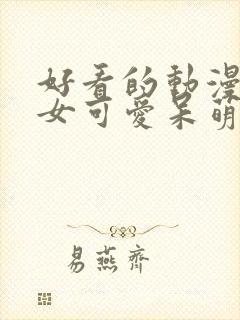 好看的動漫
女可愛呆萌
易燕齊